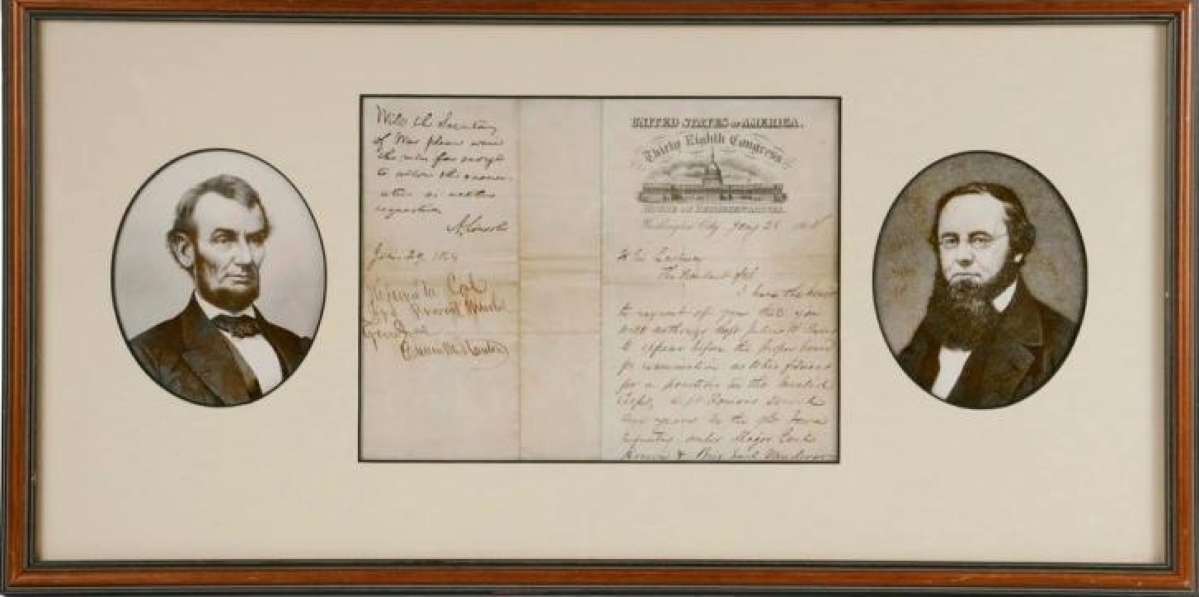 Will the Secretary
of War please waive
the rule far enough
to allow the exami-
nation as within
requested.
A. Lincoln
Jan. 29, 1864
Referred to Col
Provost Marshal
General
Edwin M Stanton
UNITED STATES OF AMERICA.
Thirty Eighth Congress
HOUSE OF REPRESENTATIVES.
Washington City, Jany 28
His Excellency
The President
I have the honor
to request of you that you
will authorize Capt Julius H.
to appear before the proper board
for examination as to his fitness
for a position in the Invalid
Corps,
two years in the Iowa
under Major
& Brig Genl